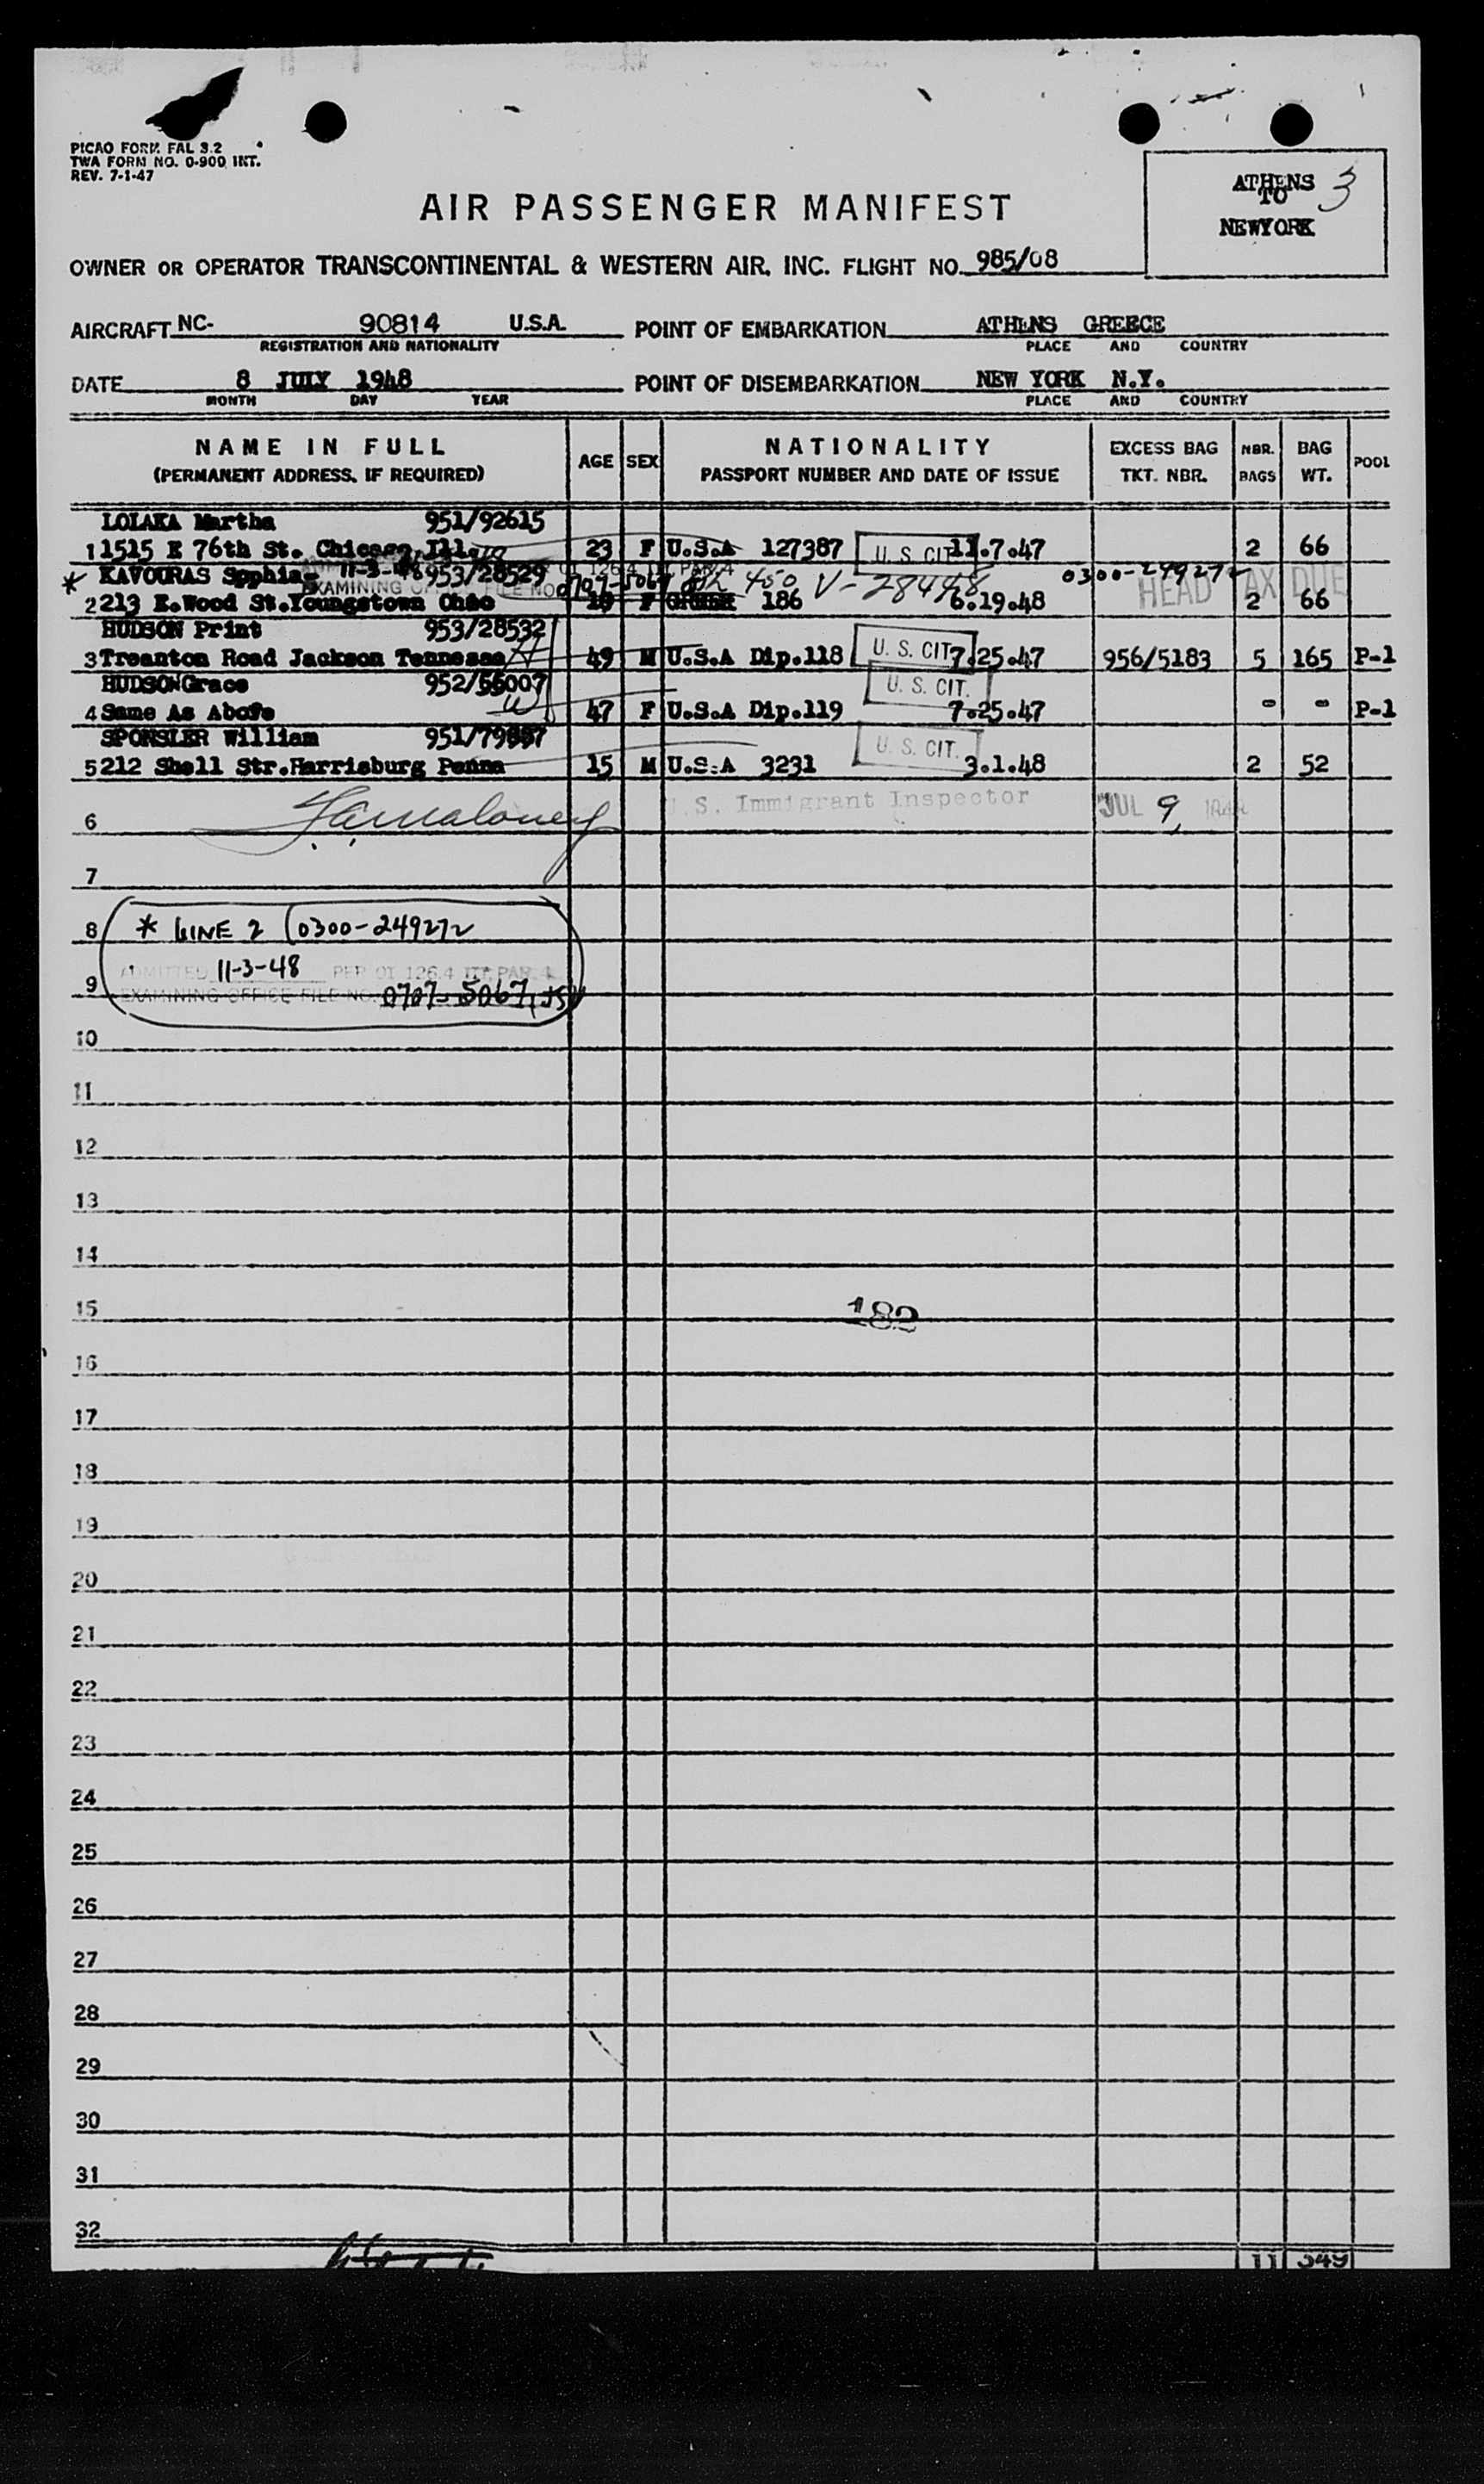 PICAO FORM FAL 3.2
TWA FORM NO. 0-900 INT.
REV. 7-1-47
ATHENS 3
TO
NEWYORK
AIR PASSENGER MANIFEST
OWNER OR OPERATOR TRANSCONTINENTAL & WESTERN AIR, INC. FLIGHT NO. 985/08
AIRCRAFT NC- 90814 U.S.A. POINT OF EMBARKATION ATHENS GREECE
REGISTRATION AND NATIONALITY PLACE AND COUNTRY
DATE 8 JULY 1948 POINT OF DISEMBARKATION NEW YORK N.Y.
MONTH DAY YEAR PLACE AND COUNTRY
NAME IN FULL AGE SEX NATIONALITY EXCESS BAG NBR. BAG POOL
(PERMANENT ADDRESS, IF REQUIRED) PASSPORT NUMBER AND DATE OF ISSUE TKT. NBR. BAGS WT.
LOLAKA Martha 951/92615
1 1515 E 76th St. Chicago, Ill. 23 F U.S.A 127387 U. S. CIT. 11.7.47 2 66
* KAVOURAS Spphia 11-3-48 953/28529 0707-5067 450 V-28448 0300-249272
EXAMINING OFFICE FILE NO HEAD TAX DUE
2 213 E.Wood St.Youngstown Ohio F GREEK 186 6.19.48 2 66
HUDSON Print 953/28532
3 Treanton Road Jackson Tennessee 49 M U.S.A Dip.118 U. S. CIT. 7.25.47 956/5183 5 165 P-1
HUDSON Grace 952/56007 U. S. CIT.
4 Same As Abofe 47 F U.S.A Dip.119 7.25.47 - - P-1
SPONSLER William 951/79887 U. S. CIT.
5 212 Shell Str.Harrisburg Penna 15 M U.S.A 3231 3.1.48 2 52
U. S. Immigrant Inspector JUL 9, 1948
6
7
8 * LINE 2 0300-249272
ADMITTED 11-3-48 PER OI 126.4 ITF PAR 4
9 EXAMINING OFFICE FILE NO. 0707-5067
10
11
12
13
14
15 182
16
17
18
19
20
21
22
23
24
25
26
27
28
29
30
31
32
11 349